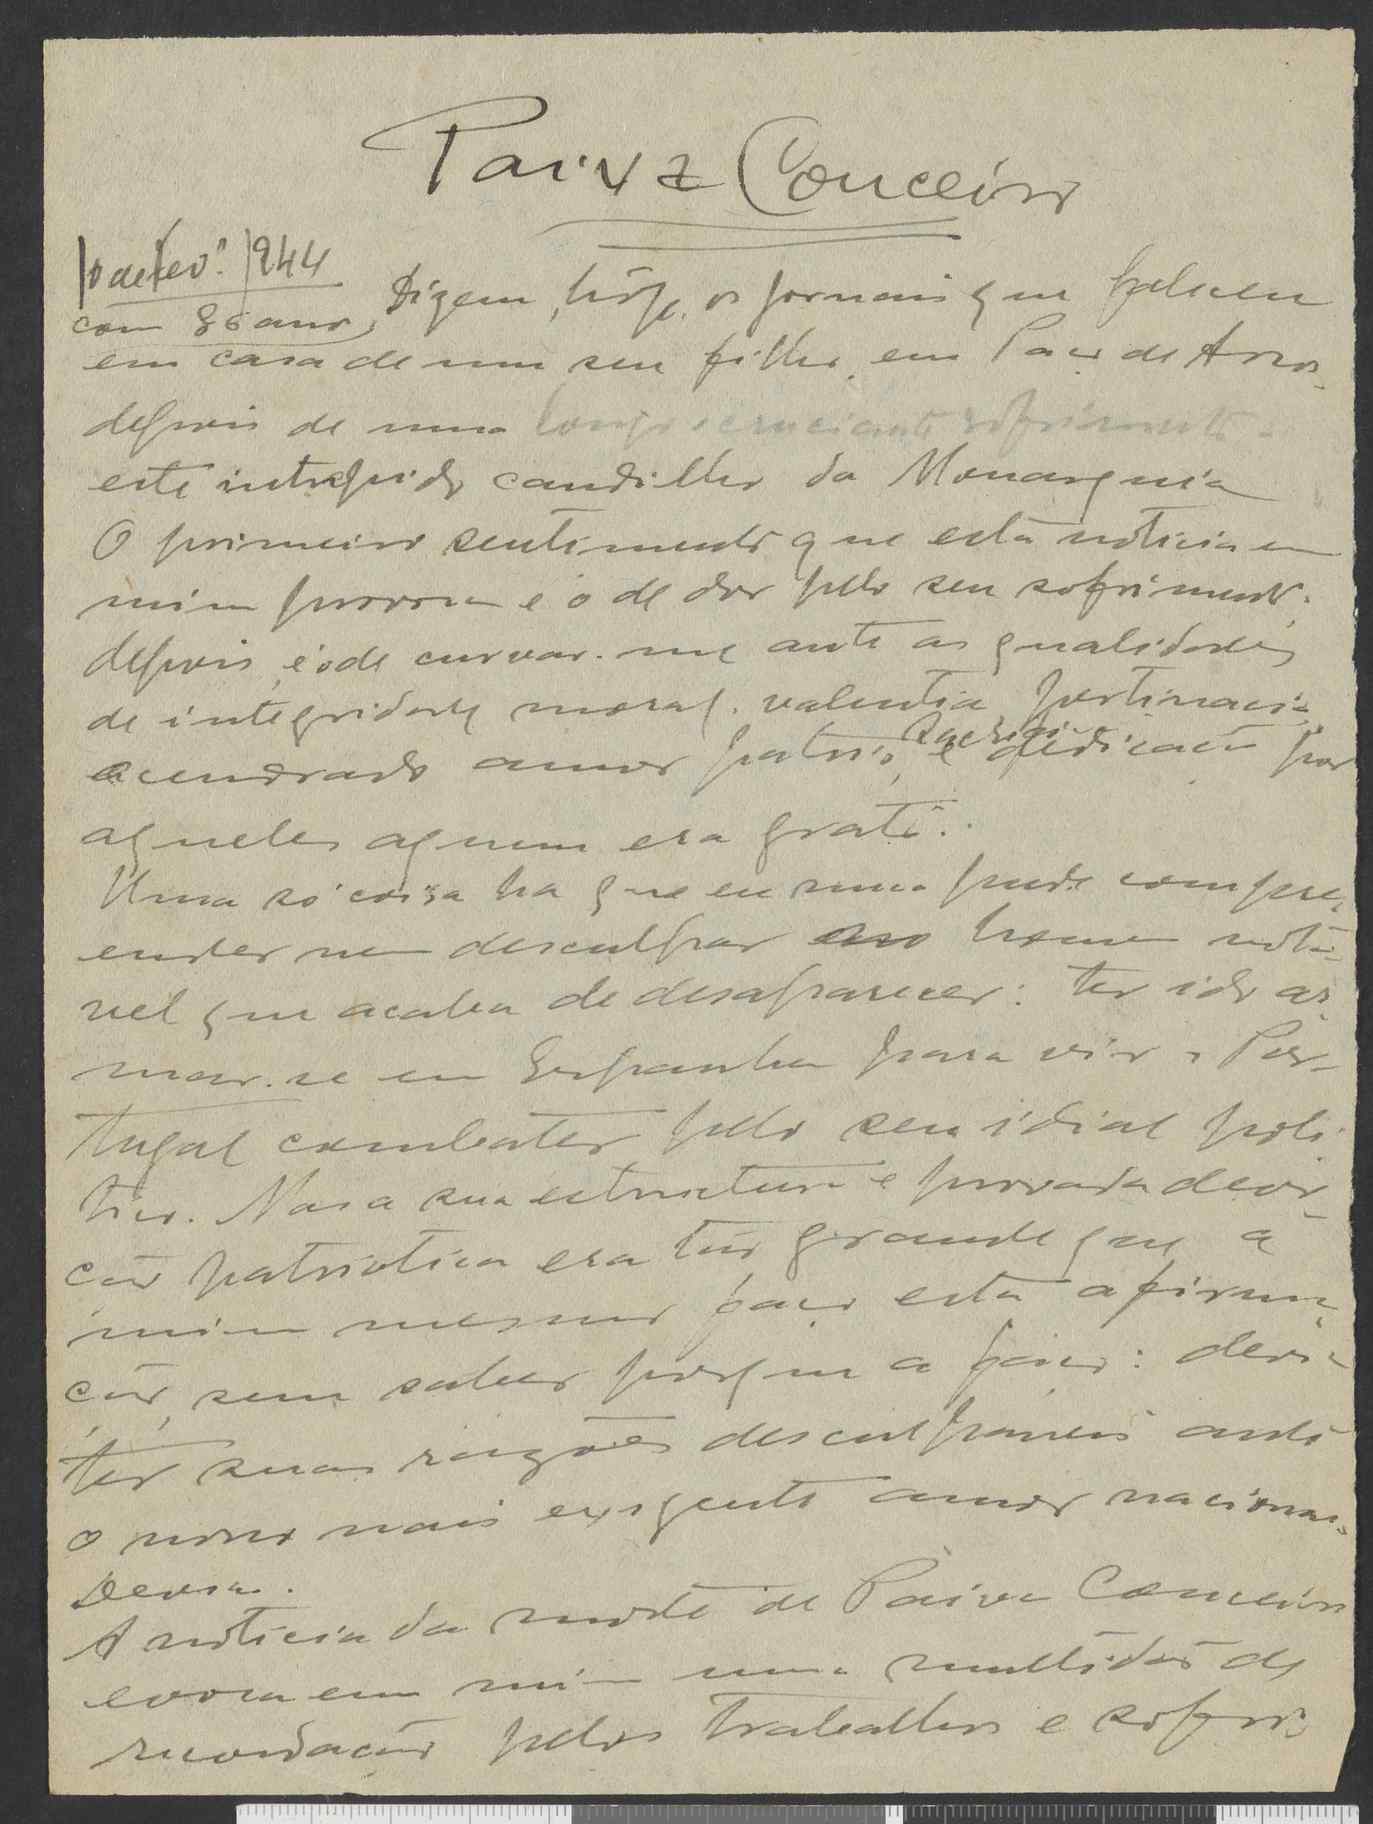 Paiva Couceiro
10 de Fevº. 1944
com 86 anos,
Dizem, hoje, os jornais que faleceu
em casa de um seu filho, em Paço de Arcos,
depois de um longo e cruciante sofrimento
este intrepido caudilho da Monarquia
O primeiro sentimento que esta noticia em
mim provoca é o de dor pelo seu sofrimento;
depois, é o de curvar-me ante as qualidades
de integridade moral, valentia, pertinacia,
acendrado amor patrio, e dedicação por
aqueles a quem era grato.
Uma só coisa ha que eu nunca pude compre-
ender nem desculpar ao homem notá-
vel que acaba de desaparecer: ter ido ar-
mar-se em Espanha para vir a Por-
tugal combater pelo seu idial poli-
tico. Mas a sua estructura e provada devo-
ção patriotica era tão grande que a
mim mesmo faço esta afirma-
ção, sem saber porque a faço: devia
ter suas razões desculpaveis ante
o nosso mais exigente amor nacional.
Devia.
A noticia da morte de Paiva Couceiro
evoca em mim uma multidão de
recordações pelos trabalhos e sofri-